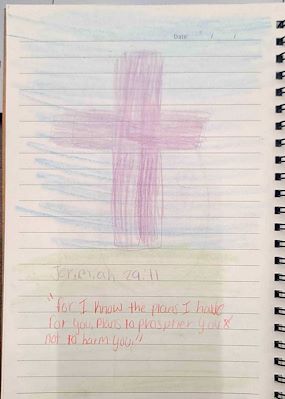 Date: / /
Jeremiah 29:11
"for I know the plans I have
for you, plans to phospher you &
not to harm you."